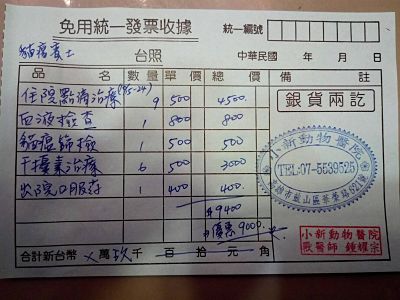 免用統一發票收據
統一編號
貓瘟賓士 台照 中華民國 年 月 日
品名 數量 單價 總價 備註
住院點滴治療(15-24) 9 500 4500
血液檢查 1 800 800
貓瘟篩檢 1 500 500
干擾素治療 6 500 3000
出院口服藥 1 400 400
$9400
優惠9000
合計新台幣 X萬玖千百拾元角
銀貨兩訖
小新動物醫院
TEL:07-5539525
小新動物醫院
獸醫師 鍾耀宗